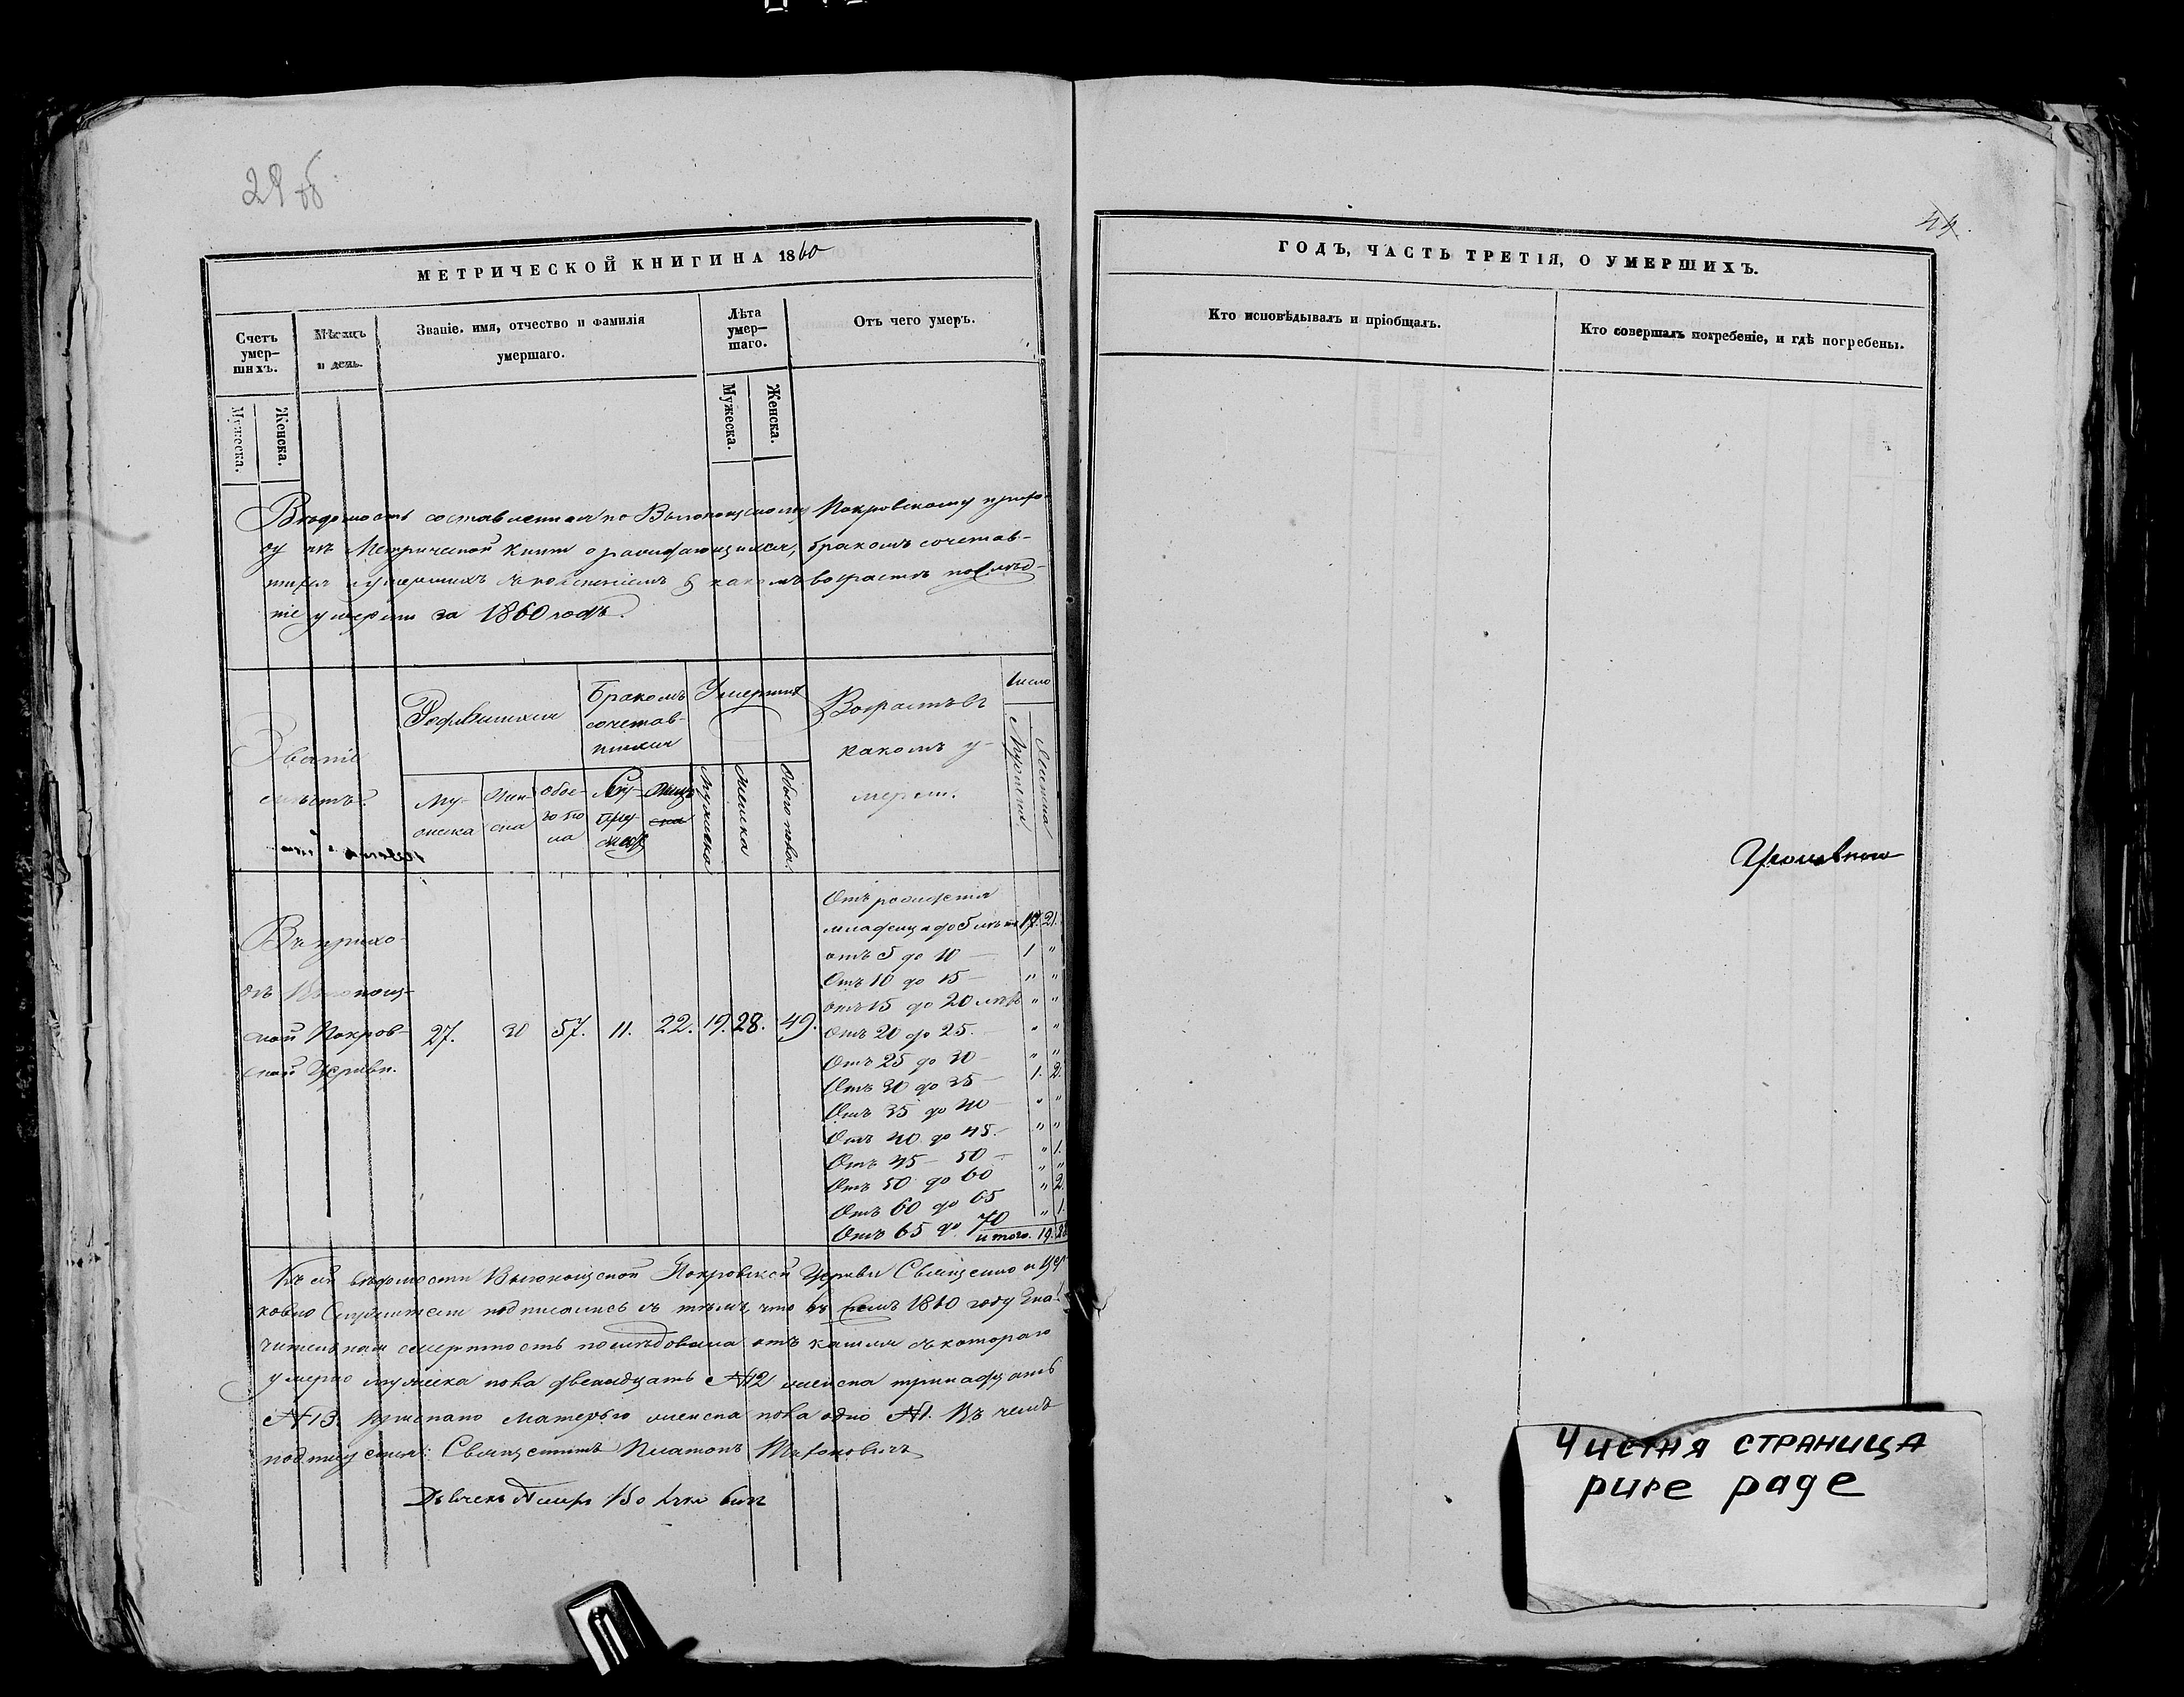 29об
МЕТРИЧЕСКОЙ КНИГИ НА 1860
Счетъ умер-шихъ.
Мѣсяцъ и день.
Званіе. имя, отчество и фамилія
умершаго.
Лѣта умер-шаго.
Отъ чего умеръ.
Мужеска.
Женска.
Мужеска.
Женска.
Вѣдомость составленная по Покровскому прихо-
ду къ Метрической книги о раждающихся, бракомъ сочетав-
шихся и умершихъ въ какомъ возрастѣ послѣд-
ніе умерли за 1860 годъ.
Званіе
Родившихся
Бракомъ
сочетав-
шихся
Умершихъ
Возрастъ въ
какомъ у-
мерли.
Число
Му-
жеска
Жен-
ска
Обое-
го по
ла
Мужеска
Женска
Обоего пола.
Мужеска
Женска
Въ прихо-
дѣ
ской Покров-
ской Церкви.
27. 30 57. 11. 22. 19. 28. 49.
Отъ рожденія
младенца до 5 лѣтъ 17. 21.
отъ 5 до 10 — 1 "
Отъ 10 до 15 — " "
отъ 15 до 20 лѣтъ " "
Отъ 20 до 25. — " "
Отъ 25 до 30 — " "
Отъ 30 до 35 — 1. 2.
Отъ 35 до 40 — " "
Отъ 40 до 45. — " "
Отъ 45 — 50 — " 1.
Отъ 50 до 60 " "
Отъ 60 до 65 " 2.
Отъ 65 до 70 " 1.
итого. 19. 28
Къ сей вѣдомости Покровской Церкви Священно и Цер-
ковно служители подписались въ томъ, что въ семъ 1860 году зна-
чительная смертность послѣдовала отъ кашля съ котораго
умерло мужеска пола двенадцать №12 женска тринадцать
№13. матерью женска пола одно №1. Въ чемъ
подписуемся: Священникъ Платонъ
ГОДЪ, ЧАСТЬ ТРЕТІЯ, О УМЕРШИХЪ.
44.
Кто исповѣдывалъ и пріобщалъ.
Кто совершалъ погребеніе, и гдѣ погребены.
Чистая страница
pure page